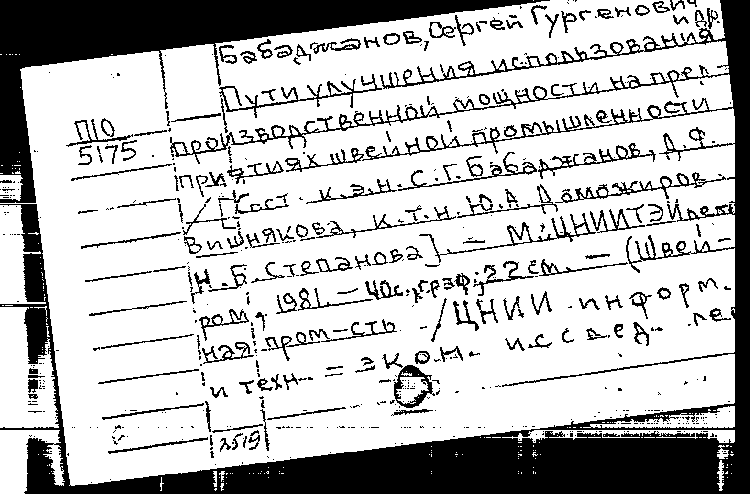 Бабаджанов, Сергей Гургенович
и др.
Пути улучшения использования
П10
5175
производственной мощности на пред-
приятиях швейной промышленности
[Сост. к.э.н. С.Г. Бабаджанов, Д.Ф.
Вишнякова, к.т.н. Ю.А. Доможиров.
Н.Б. Степанова]. — М.: ЦНИИТЭИлег
пром, 1981. — 40с., граф; 22 см. — (Швей-
ная пром-сть / ЦНИИ информ.
и техн. = экон. исслед. лег
2519